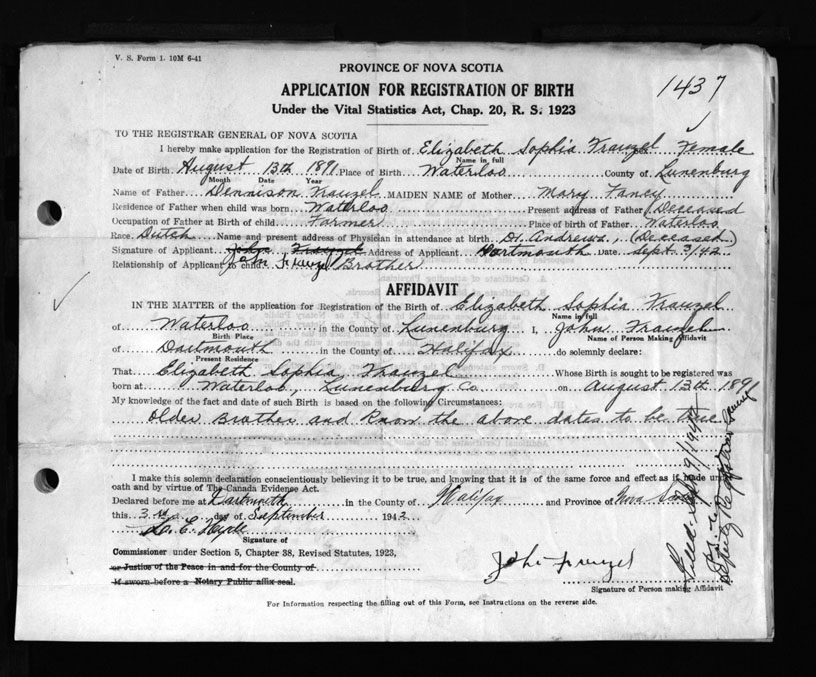 V. S. Form 1. 10M 6-41
PROVINCE OF NOVA SCOTIA
APPLICATION FOR REGISTRATION OF BIRTH
1437
Under the Vital Statistics Act, Chap. 20, R. S. 1923
TO THE REGISTRAR GENERAL OF NOVA SCOTIA
I hereby make application for the Registration of Birth of Elizabeth Sophia Trauzel Female
Name in full
Date of Birth August 13th 1891 Place of Birth Waterloo County of Lunenburg
Month Date Year
Name of Father Dennison Trauzel MAIDEN NAME of Mother Mary Fancy
Residence of Father when child was born Waterloo Present address of Father (Deceased
Occupation of Father at Birth of child Farmer Place of birth of Father Waterloo
Race Dutch Name and present address of Physician in attendance at birth Dr. Andrews, (Deceased)
Signature of Applicant John Trauzel Address of Applicant Dartmouth Date Sept 3/42
Relationship of Applicant to child Brother
AFFIDAVIT
IN THE MATTER of the application for Registration of the Birth of Elizabeth Sophia Trauzel
Name in full
of Waterloo in the County of Lunenburg I, John Trauzel
Birth Place Name of Person Making Affidavit
of Dartmouth in the County of Halifax do solemnly declare:
Present Residence
That Elizabeth Sophia Trauzel Whose Birth is sought to be registered was
born at Waterloo, Lunenburg Co on August 13th 1891
My knowledge of the fact and date of such Birth is based on the following Circumstances:
Older Brother and know the above dates to be true
I make this solemn declaration conscientiously believing it to be true, and knowing that it is of the same force and effect as if made under
oath and by virtue of The Canada Evidence Act.
Declared before me at Dartmouth in the County of Halifax and Province of Nova Scotia
this 3rd day of September 1942
Signature of
Commissioner under Section 5, Chapter 38, Revised Statutes, 1923,
or Justice of the Peace in and for the County of
If sworn before a Notary Public affix seal.
Signature of Person making Affidavit
For Information respecting the filling out of this Form, see Instructions on the reverse side.